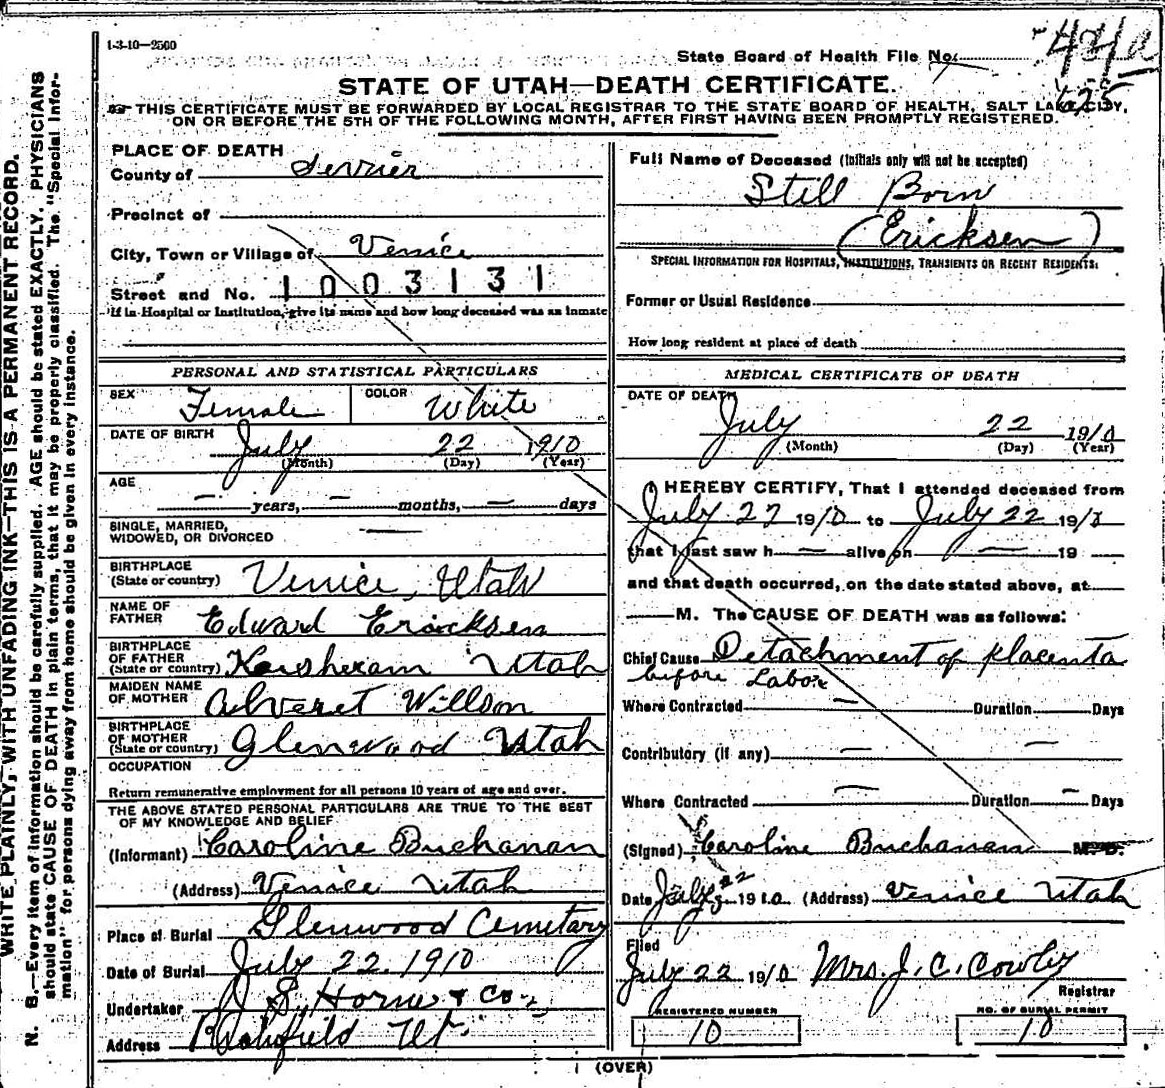 1-3-10—2500
State Board of Health File No.
STATE OF UTAH—DEATH CERTIFICATE.
THIS CERTIFICATE MUST BE FORWARDED BY LOCAL REGISTRAR TO THE STATE BOARD OF HEALTH, SALT LAKE CITY,
ON OR BEFORE THE 5TH OF THE FOLLOWING MONTH, AFTER FIRST HAVING BEEN PROMPTLY REGISTERED.
PLACE OF DEATH
County of Servier
Precinct of
City, Town or Village of Venice
Street and No. 1003131
If in Hospital or Institution, give its name and how long deceased was an inmate
PERSONAL AND STATISTICAL PARTICULARS
SEX Female COLOR White
DATE OF BIRTH July 22 1910
(Month) (Day) (Year)
AGE
— years, — months, — days
SINGLE, MARRIED, —
WIDOWED, OR DIVORCED
BIRTHPLACE
(State or country) Venice, Utah
NAME OF
FATHER Edward Ericksen
BIRTHPLACE
OF FATHER
(State or country) Utah
MAIDEN NAME
OF MOTHER Willson
BIRTHPLACE
OF MOTHER
(State or country) Glenwood Utah
OCCUPATION
Return remunerative employment for all persons 10 years of age and over.
THE ABOVE STATED PERSONAL PARTICULARS ARE TRUE TO THE BEST
OF MY KNOWLEDGE AND BELIEF
(Informant) Caroline Buchanan
(Address) Venice Utah
Place of Burial Glenwood Cemetary
Date of Burial July 22. 1910
Undertaker Horne & Co.
Address Richfield Ut.
Full Name of Deceased (Initials only will not be accepted)
Still Born
(Ericksen)
SPECIAL INFORMATION FOR HOSPITALS, INSTITUTIONS, TRANSIENTS OR RECENT RESIDENTS:
Former or Usual Residence
How long resident at place of death
MEDICAL CERTIFICATE OF DEATH
DATE OF DEATH
July 22 1910
(Month) (Day) (Year)
I HEREBY CERTIFY, That I attended deceased from
July 22 1910 to July 22 191
that I last saw h — alive on — 19 —
and that death occurred, on the date stated above, at
— M. The CAUSE OF DEATH was as follows:
Chief Cause Detachment of placenta
before Labor
Where Contracted — Duration Days
Contributory (if any) — —
Where Contracted — Duration — Days
(Signed) Caroline Buchanan M. D.
Date July 22 1910 (Address) Venice Utah
Filed
July 22 1910 Mrs. J. C. Cowley
Registrar
REGISTERED NUMBER
10
NO. OF BURIAL PERMIT
10
(OVER)
WRITE PLAINLY, WITH UNFADING INK—THIS IS A PERMANENT RECORD.
N. B.—Every item of information should be carefully supplied. AGE should be stated EXACTLY. PHYSICIANS
should state CAUSE OF DEATH in plain terms, that it may be properly classified. The "Special Infor-
mation" for persons dying away from home should be given in every instance.